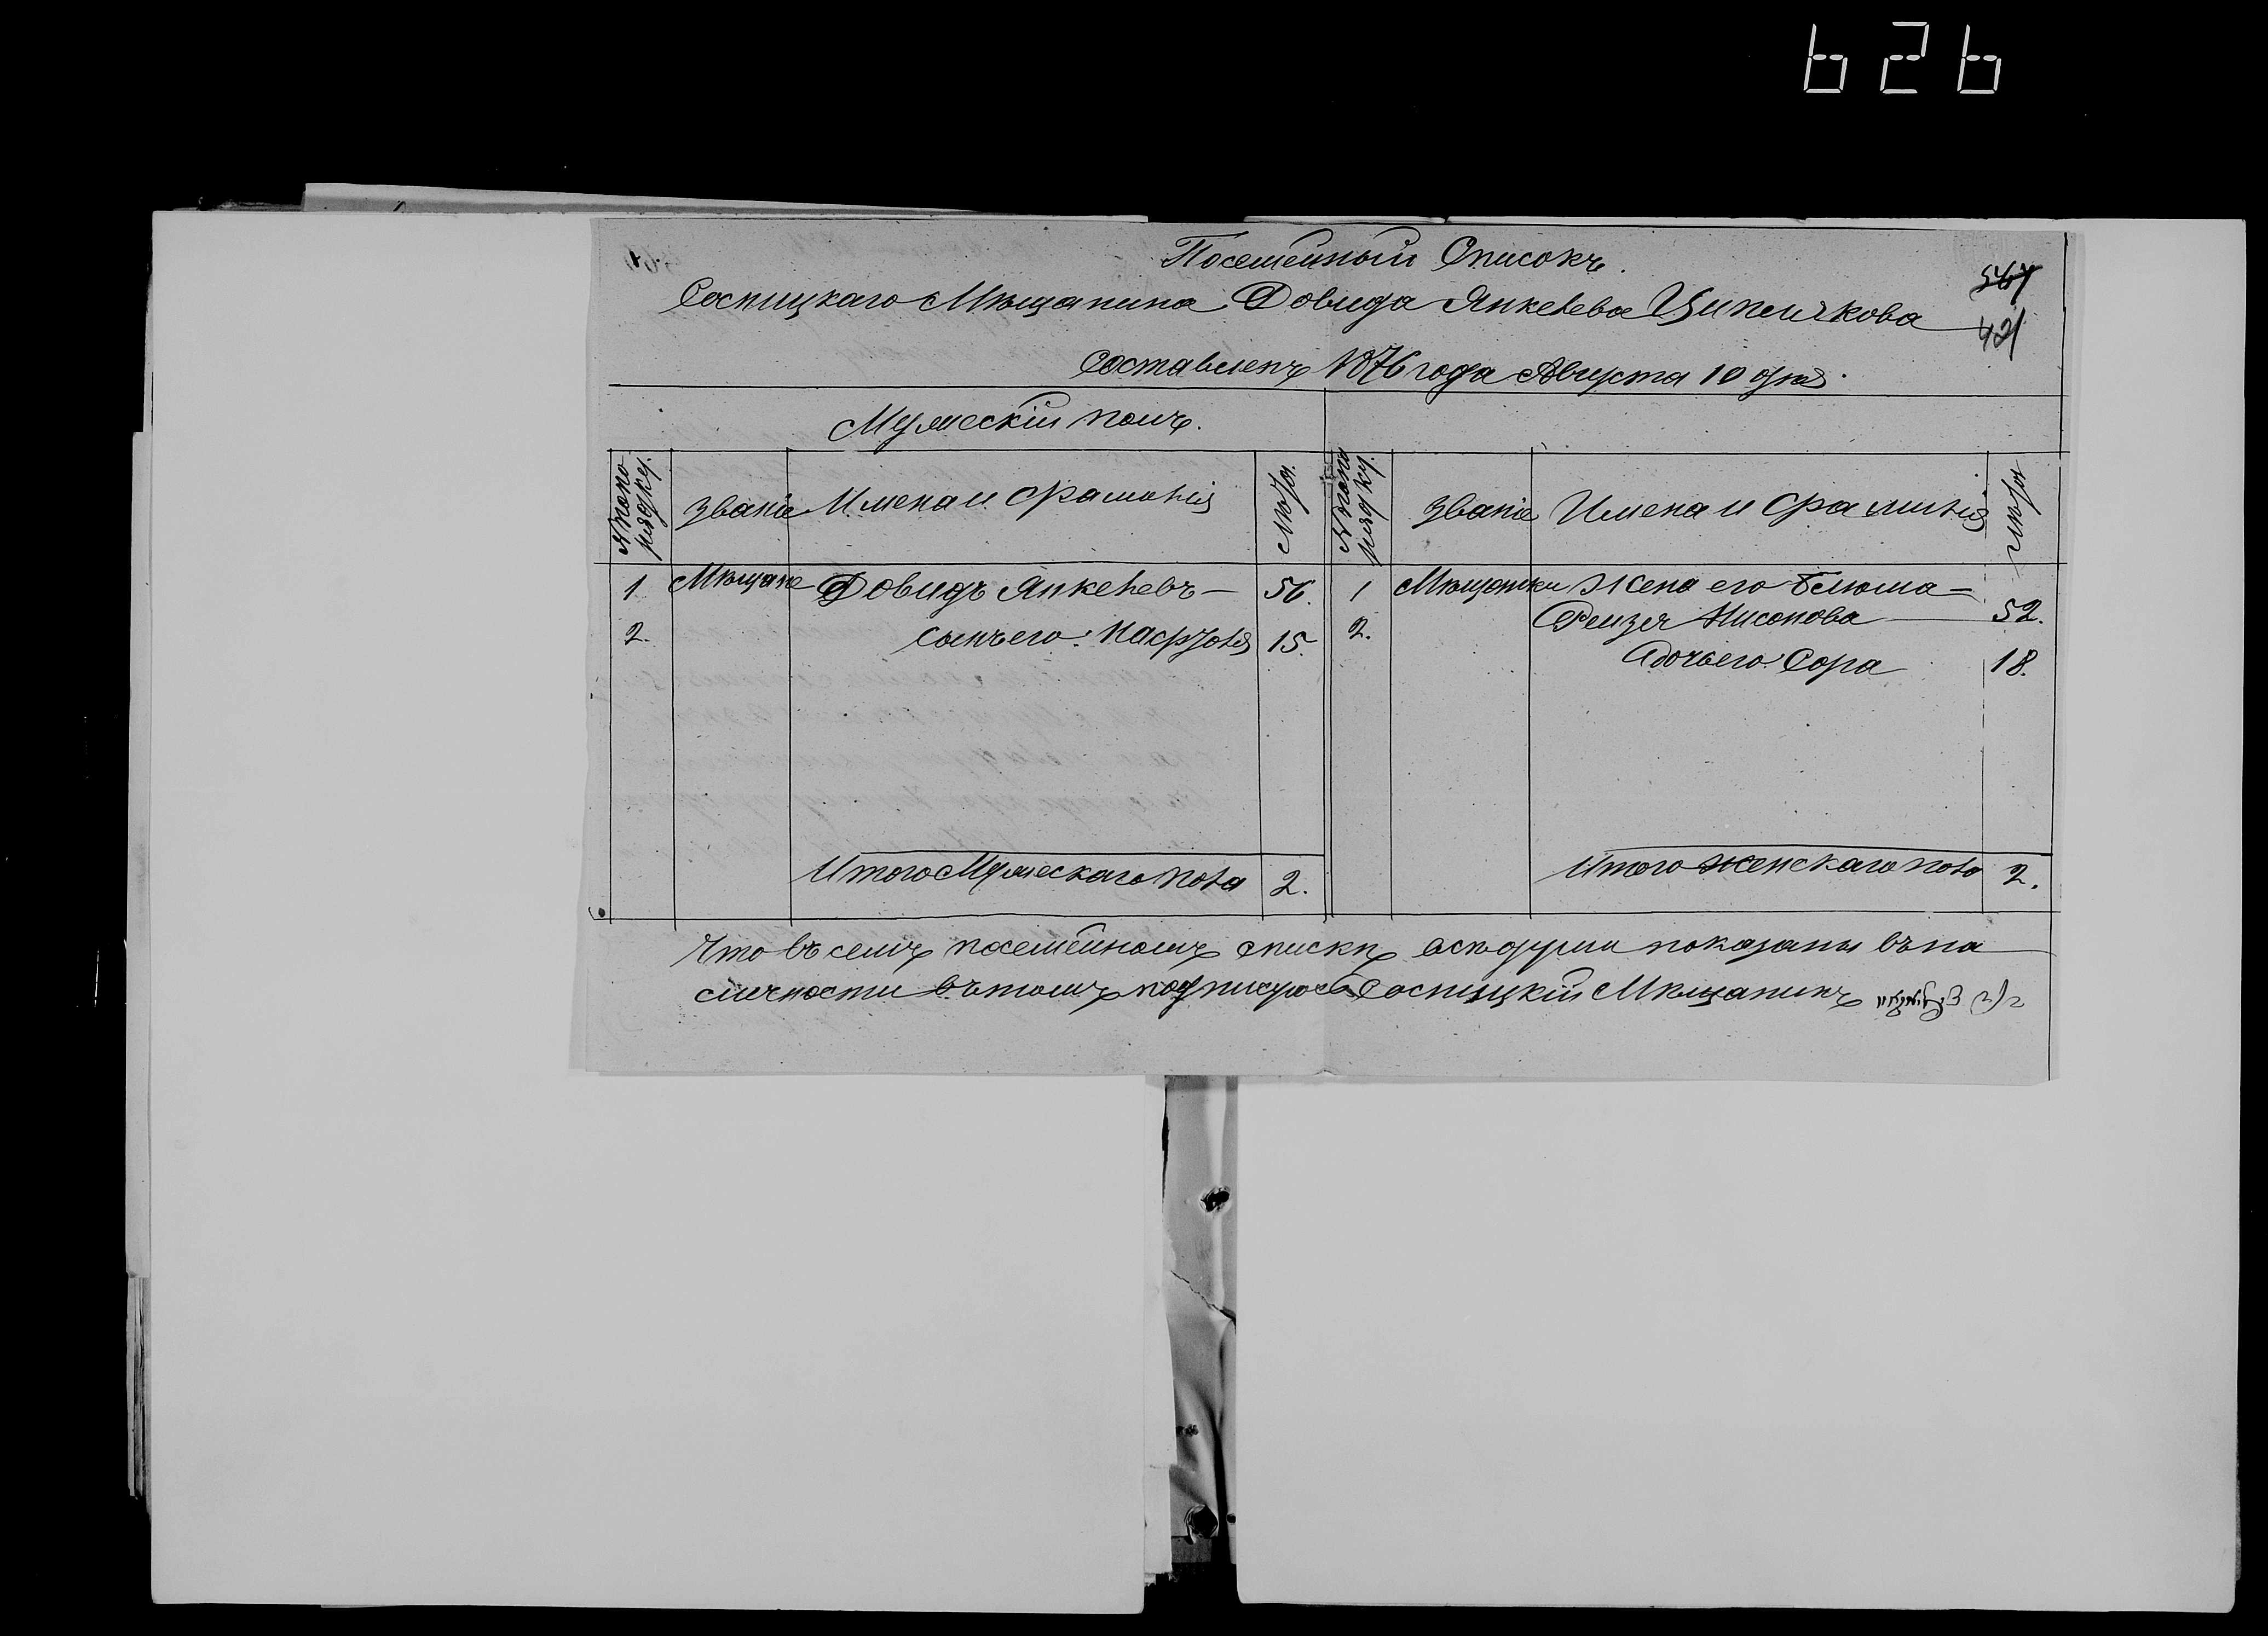 626
Посемейный Списокъ
547
Сосницкаго Мѣщанина Довида Янкелева Ципенюкова
421
Составленъ 1876 года Августа 10 дня.
Мужескій полъ.
№ по порядку. Званіе Имена и фамилія Лѣта. № по порядку. Званіе Имена и фамилія Лѣта
1 Мѣщане Довидъ Янкелевъ — 56. 1 Мѣщанки Жена его Блюма —
2. сынъ его Нафтоля 15. 2. Фейзя Нисонова 52.
дочь его Сора 18.
Итого Мужескаго пола 2. Итого Женскаго пола 2.
Что въ семъ посемейномъ спискѣ всѣ души показаны въ на
личности въ томъ подписуюсь Сосницкій Мѣщанинъ